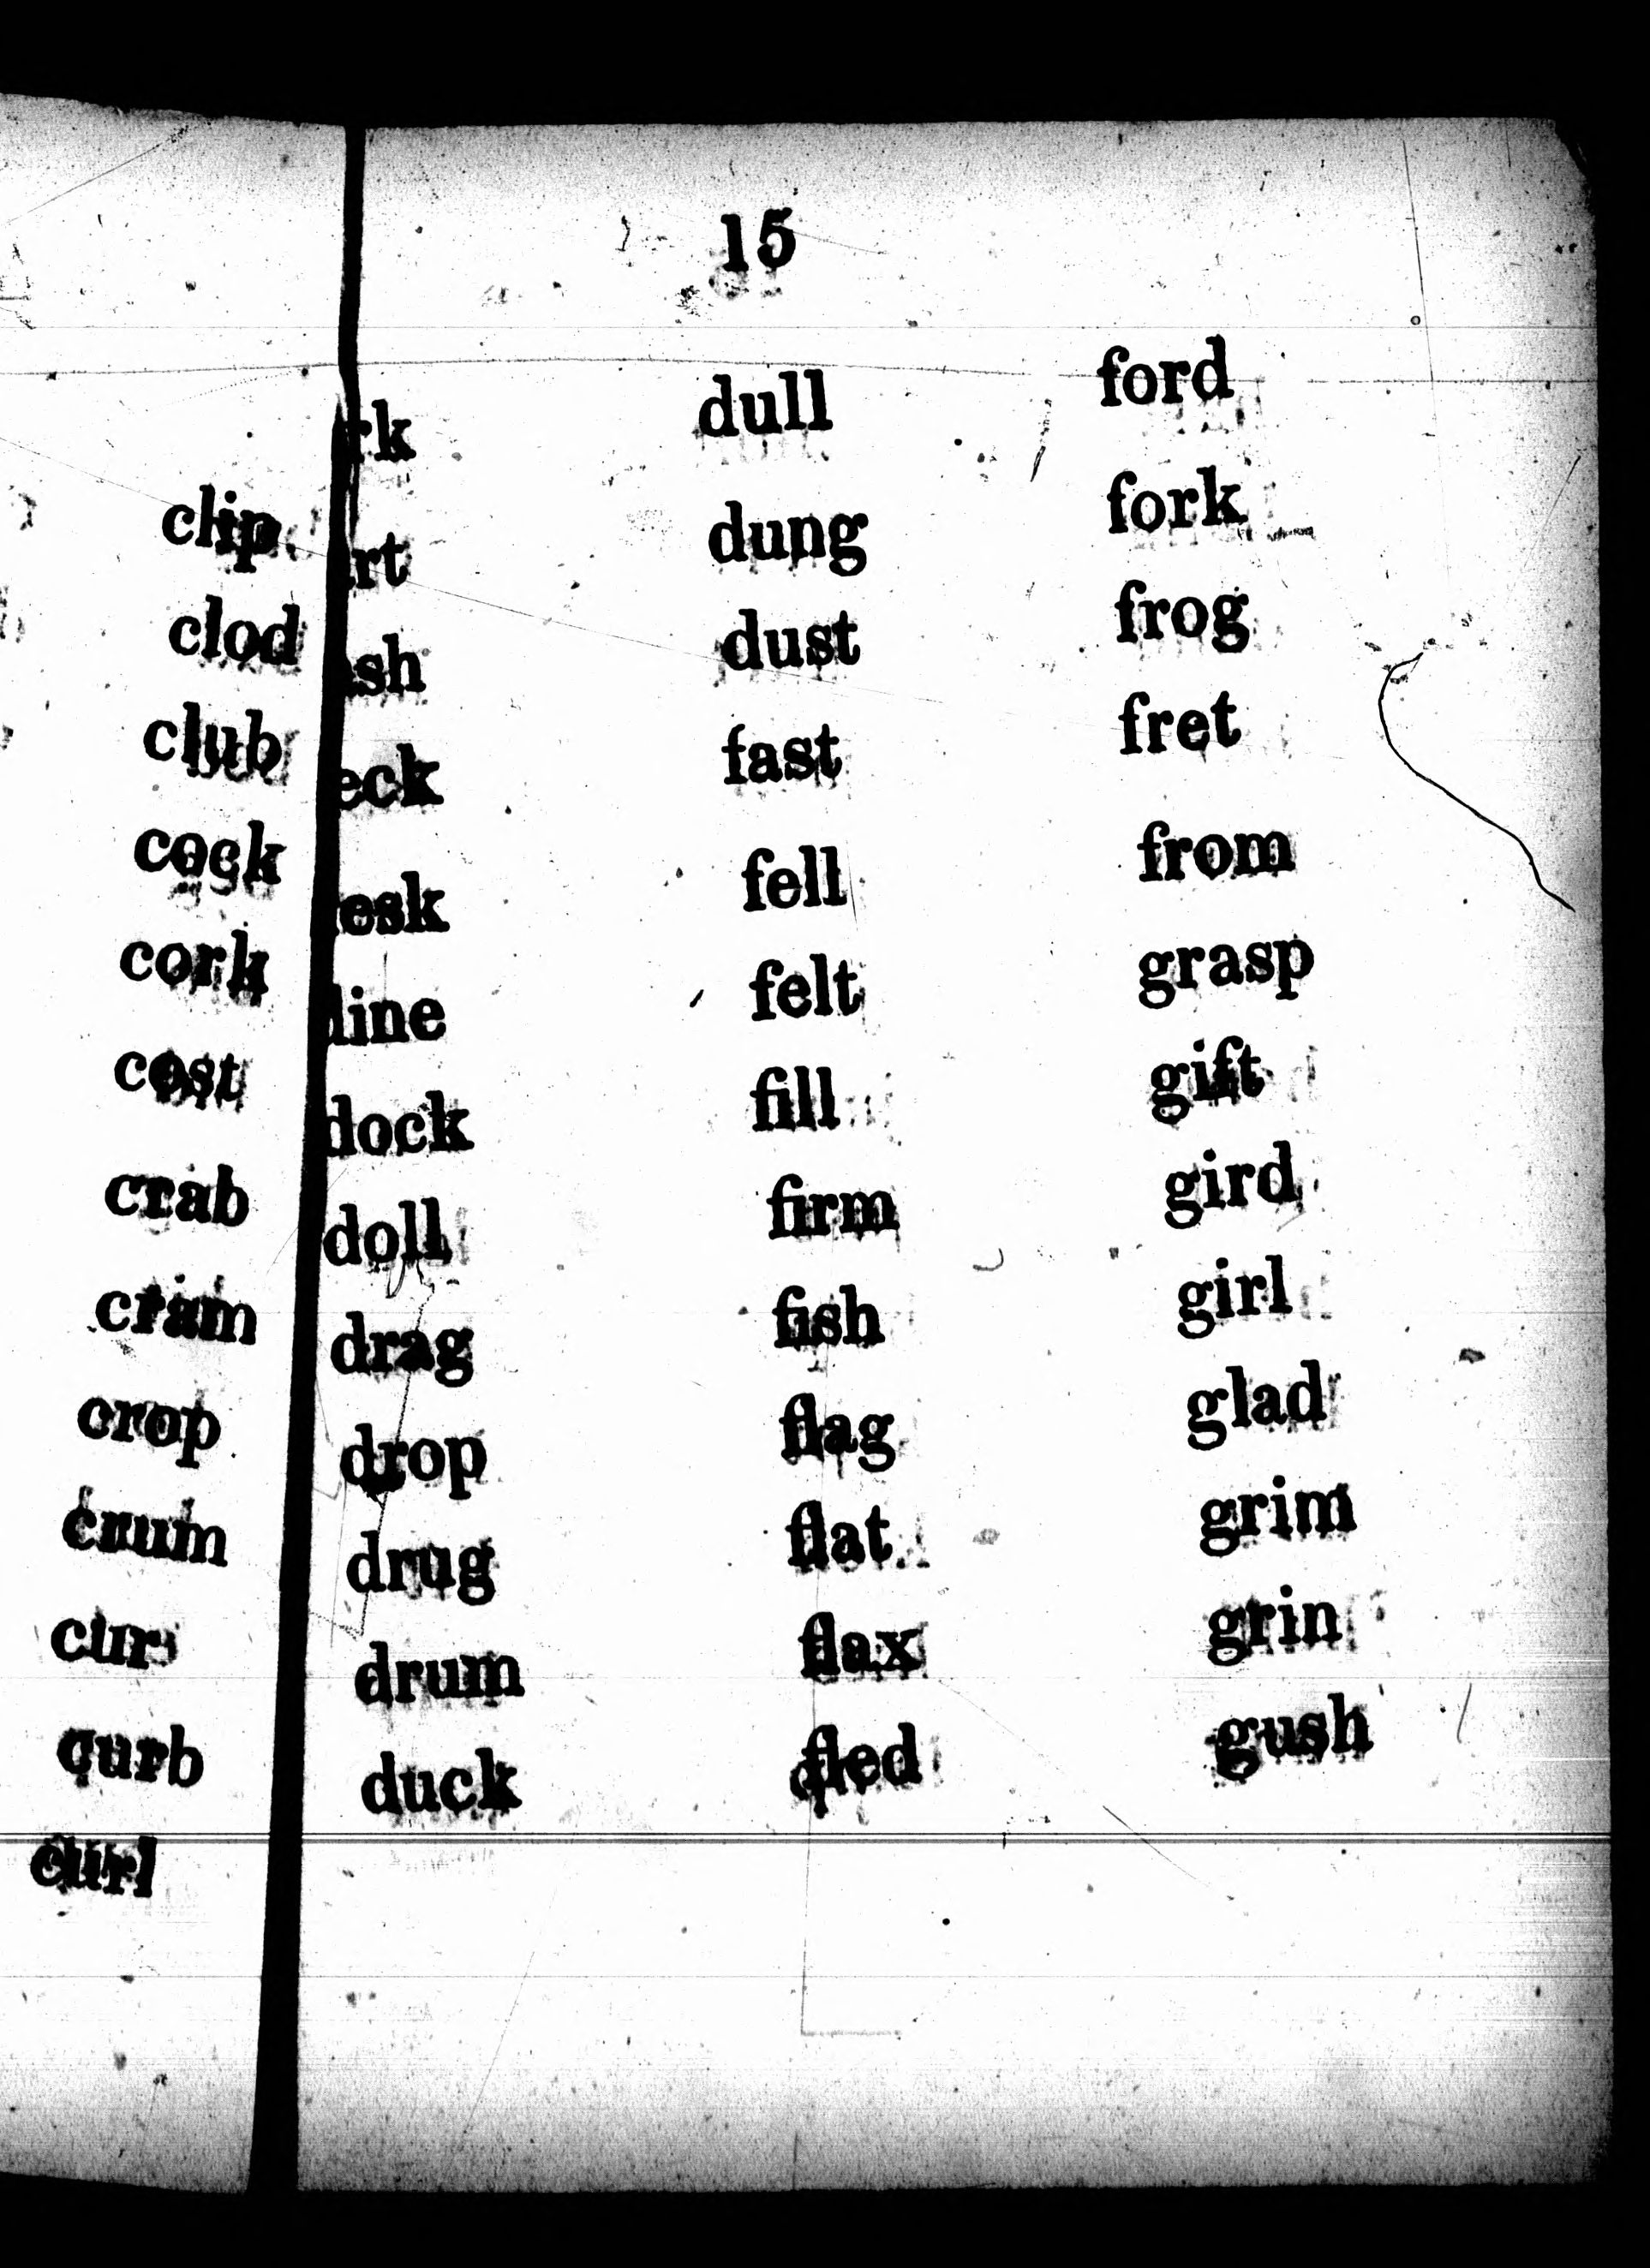 clip
clod
club
cock
cork
cost
crab
cram
crop
crum
cur
curb
curl
15
rk dull ford
rt dung fork
sh dust frog
eck fast fret
esk fell from
line felt grasp
dock fill gift
doll firm gird
drag fish girl
drop flag glad
drug flat grim
drum flax grin
duck fled gush